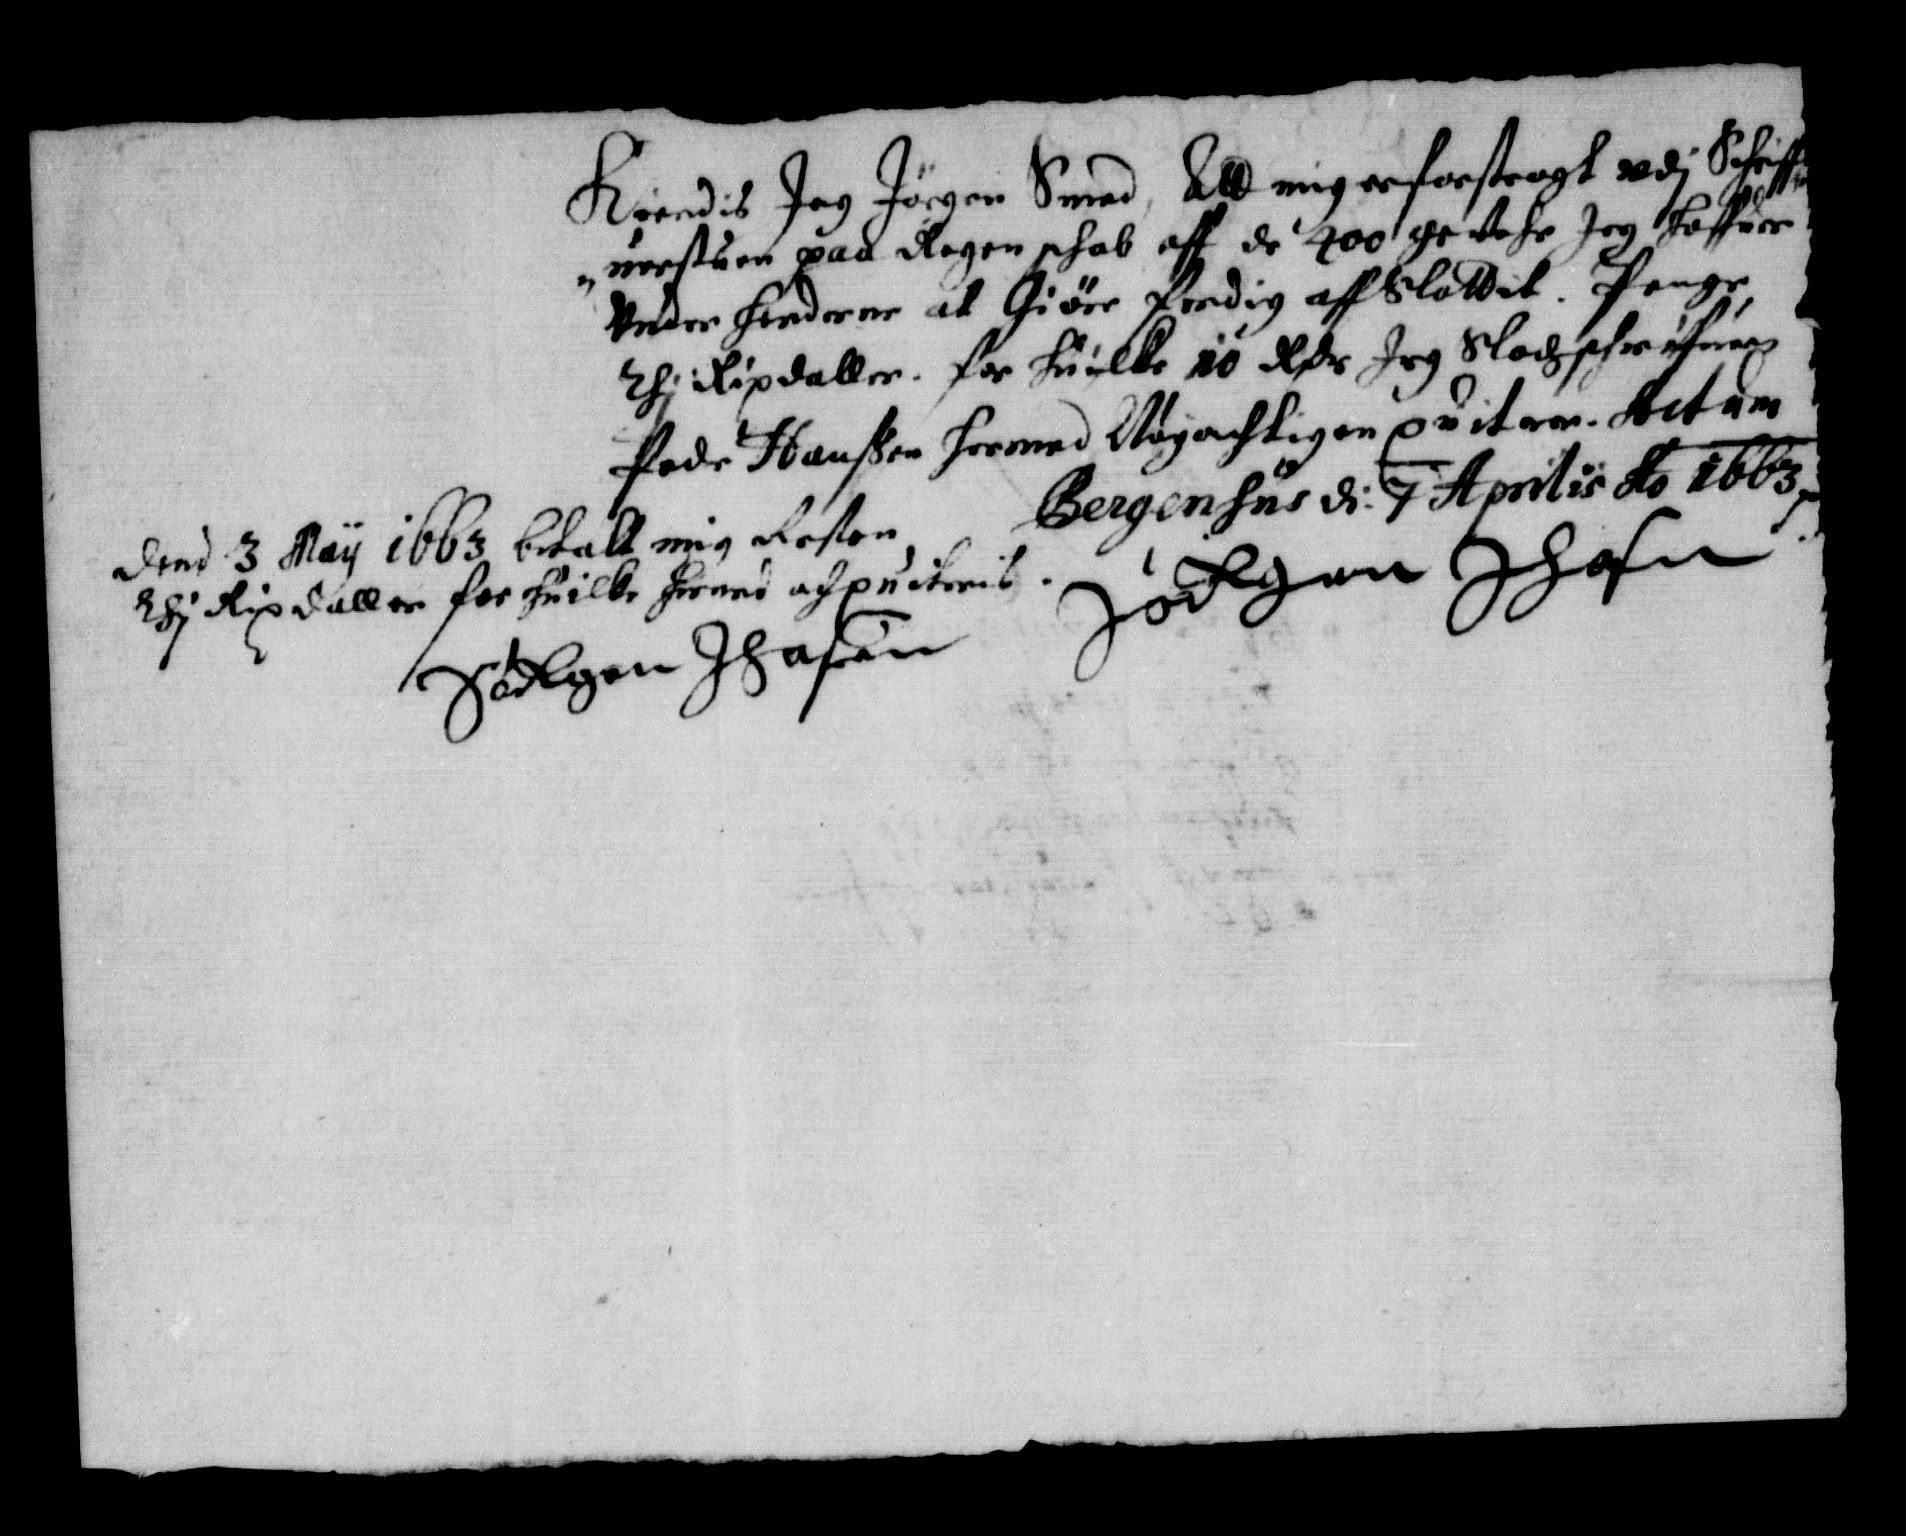 Kiendis Jeg Jörgen Smed, Att mig er forstragt udj Schriff
uerstuen paa Regenschab aff de 400 gewehr Jeg haffuer
Under henderne at Giöre ferdig aff Slottit. Penge
Thj Rixdaller. for huilke 10 Rdr Jeg Slodzschriffueren
Peder Hanssen hermed Nöyachtigen quiterer. Actum
Bergenhus d: 7 Aprilis Ao 1663
Jörgen Jhasn
Dend 3 Maij 1663 betalt mig Resten
Thj Rixdaller for huilke hermed oc quiteris.
Jörgen Jhasen